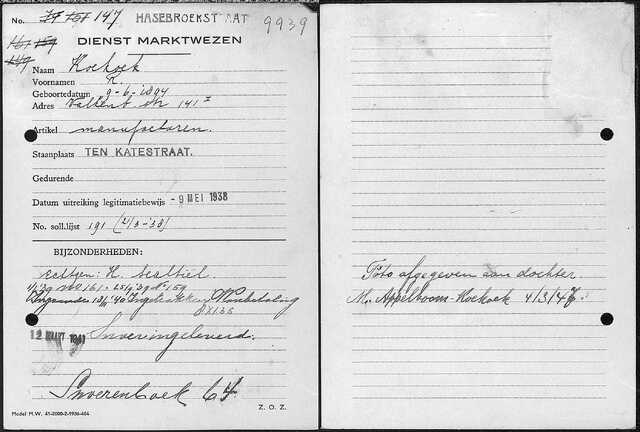 No. 147 HASEBROEKSTRAAT 9939
161 159
149
DIENST MARKTWEZEN
Naam Koekoek
Voornamen K.
Geboortedatum 9-6-1894
Adres Valkenb. str 141 I
Artikel manufacturen.
Staanplaats TEN KATESTRAAT.
Gedurende
Datum uitreiking legitimatiebewijs -9 MEI 1938
No. soll.lijst 191 (2/3-'38)
BIJZONDERHEDEN:
echtgen: H. Sealtiel.
No 161 - 25/9 '39 No 159
Ingaande '40 Ingetrokken Wanbetaling
12 MAART 1941 Inveringeleverd.
Inverenboek 64
Model M.W. 41-2000-2-1936-464 Z. O. Z.
Foto afgegeven aan dochter
M. Appelboom-Koekoek 4/3/47.